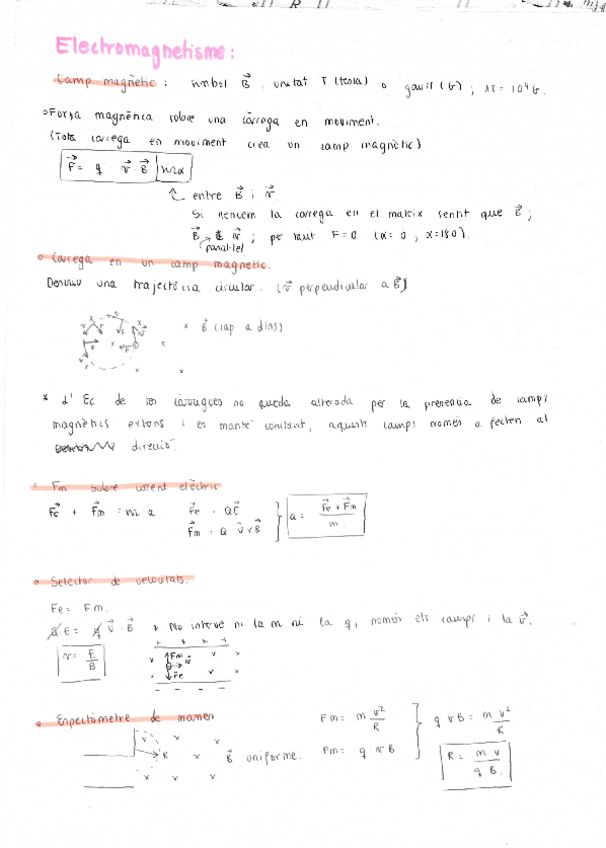 Electromagnetisme:
Camp magnètic: símbol B⃗, unitat T (tesla) o gauss (G); 1T = 10⁴G.
Força magnètica sobre una càrrega en moviment.
(Tota càrrega en moviment crea un camp magnètic)
F⃗ = q v⃗ · B⃗ sin α
entre B⃗ i v⃗.
Si llencem la càrrega en el mateix sentit que B⃗;
B⃗ v⃗; per tant F=0 (α=0, α=180).
paral·lel
Càrrega en un camp magnetic.
Descriu una trajectòria circular. (v⃗ perpendicular a B⃗)
x B⃗ (cap a dins)
* L' Ec de les càrregues no queda alterada per la presencia de camps
magnètics externs i es manté constant, aquests camps només afecten al
direcció.
Fm sobre corrent elèctric
F⃗e + F⃗m = m a F⃗e = QE⃗
F⃗m = Q v⃗ x B⃗
a = F⃗e + F⃗m / m
Selector de velocitats.
Fe = Fm.
q E = q v⃗ · B⃗ * No intervé ni la m ni la q, només els camps i la v⃗.
v = E / B
+ + + +
Fm
v⃗
Fe
- - - -
Espectòmetre de masses
Fm = m v² / R
Fm = q v B
q v B = m v² / R
R
B⃗ uniforme.
R = m v / q B.